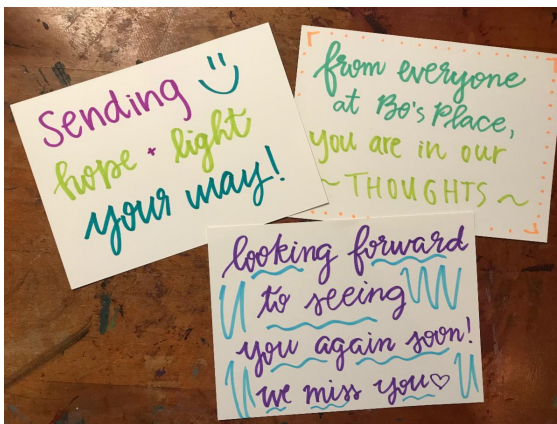 Sending
hope + light
your way!
from everyone
at Bo's Place,
you are in our
~ THOUGHTS ~
looking forward
to seeing
you again soon!
we miss you♡